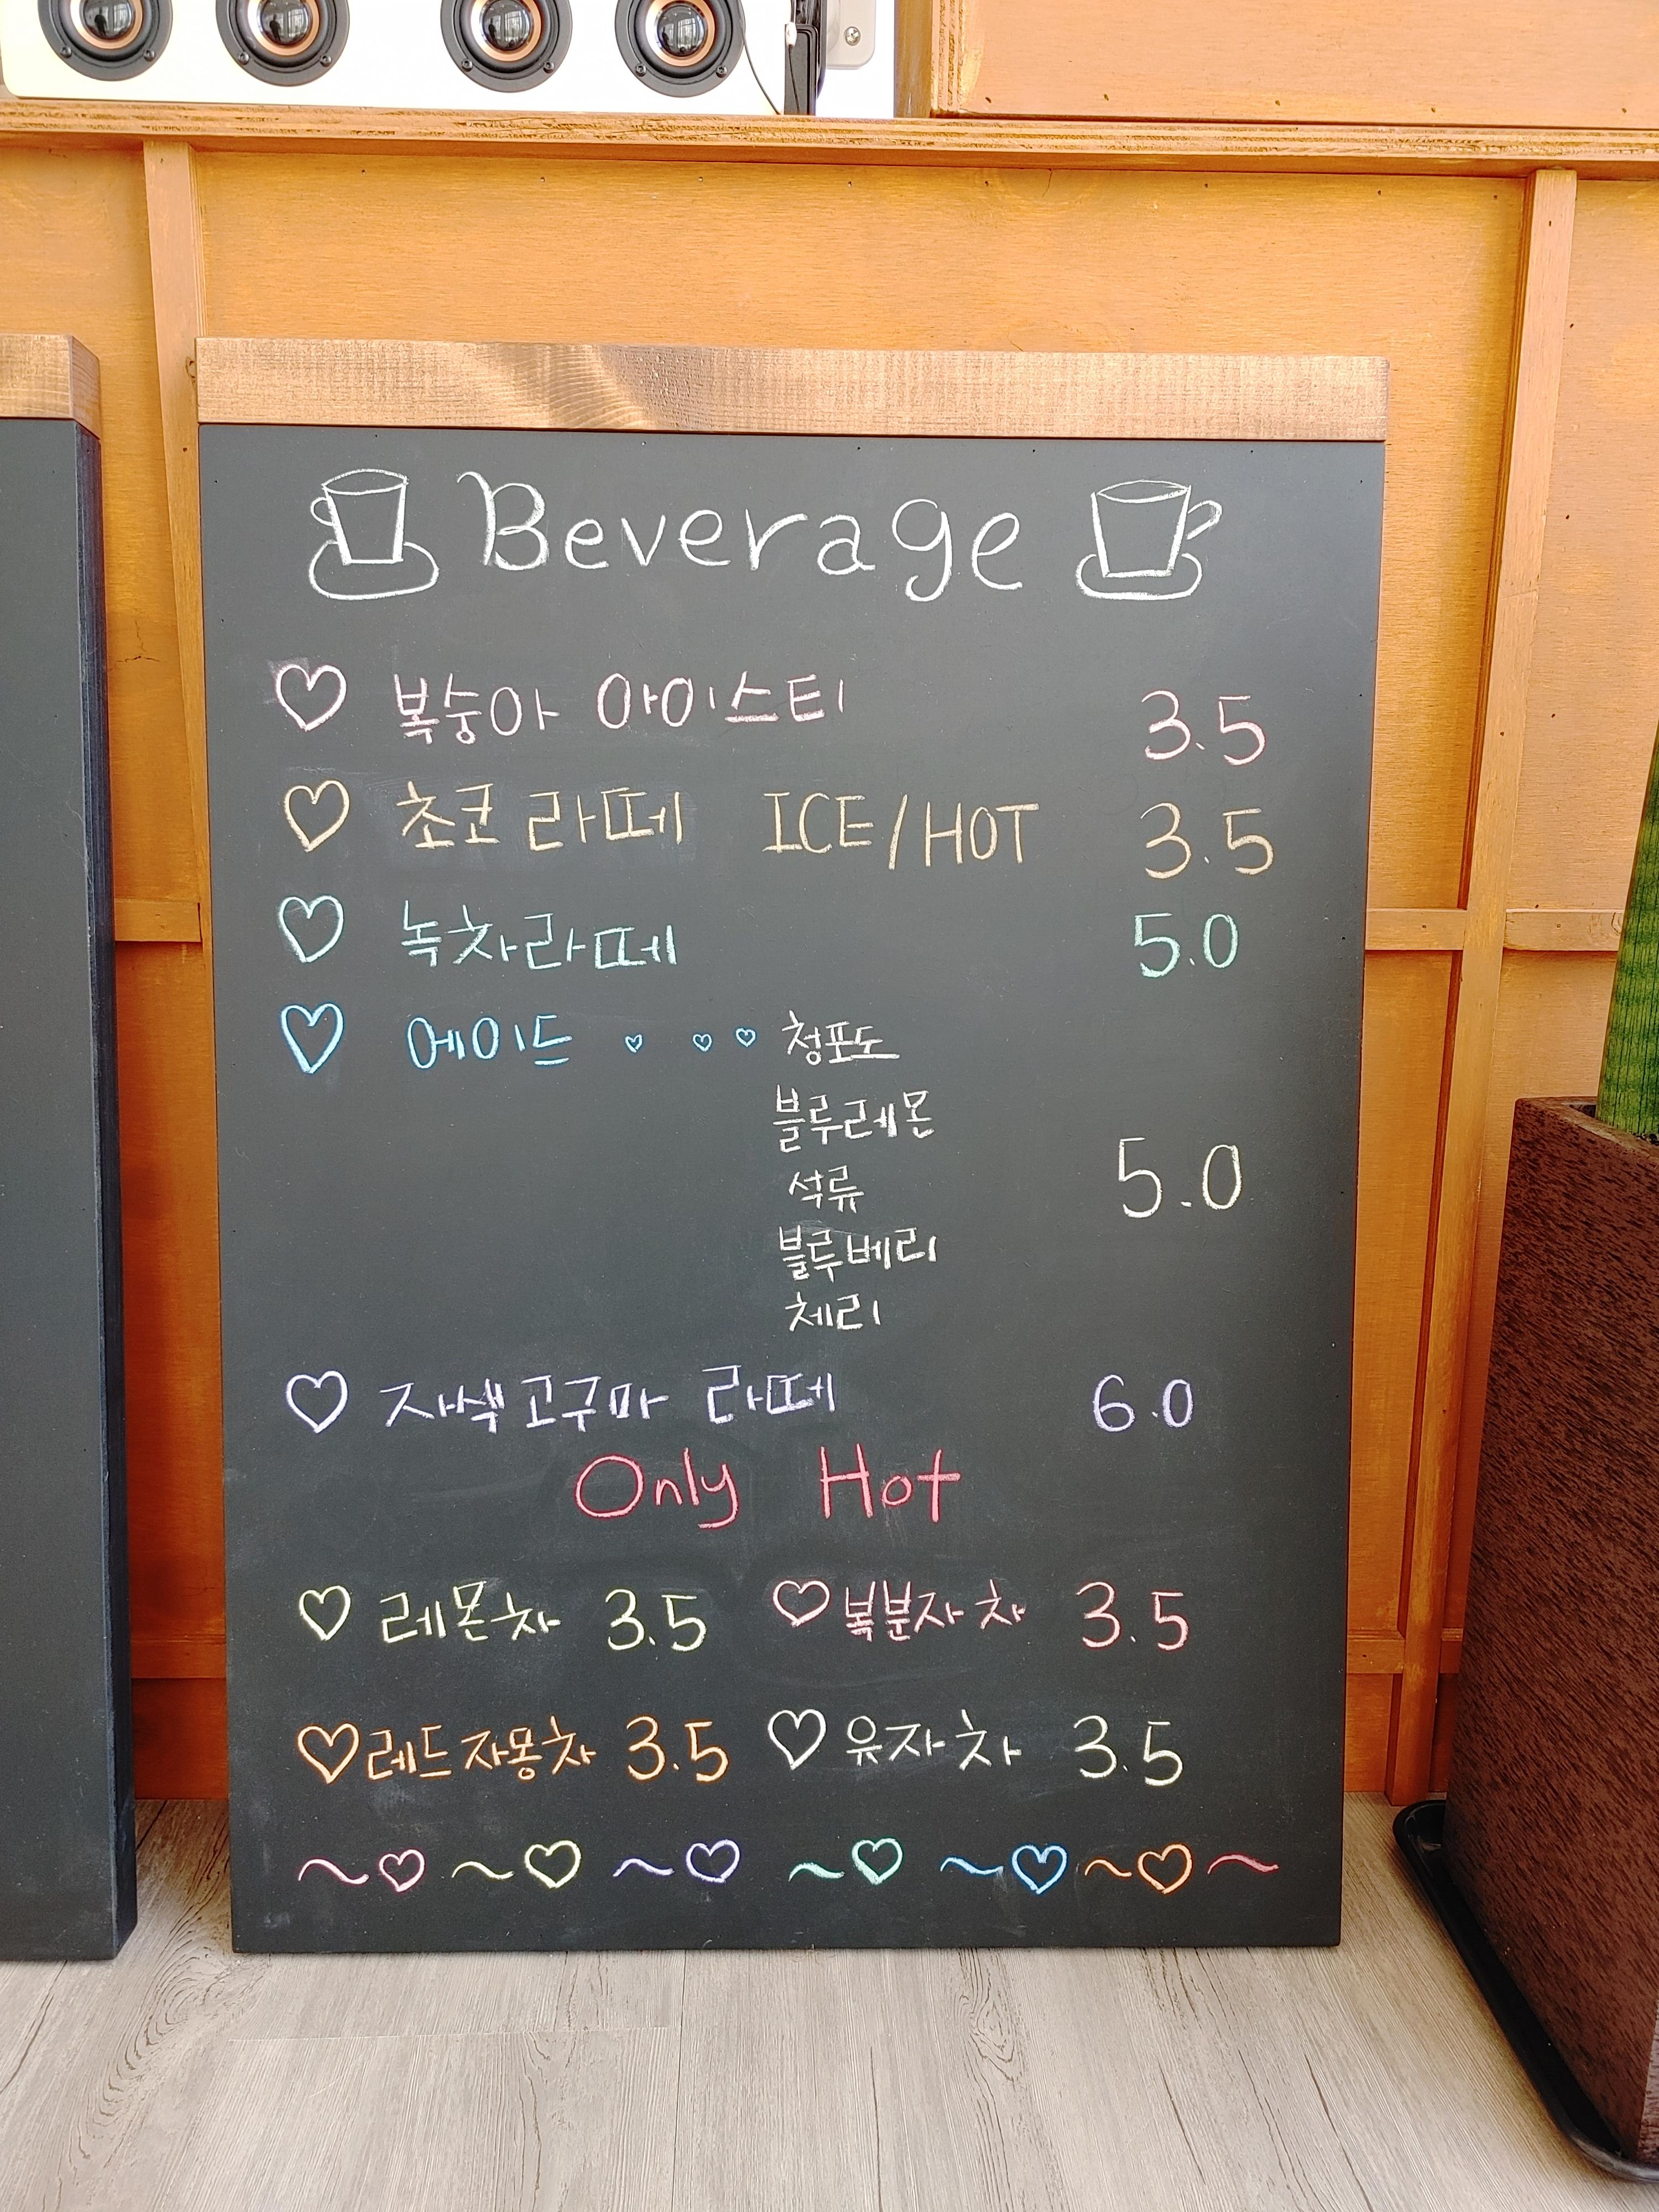 Beverage
복숭아 아이스티 3.5
초코라떼 ICE/HOT 3.5
녹차라떼 5.0
에이드 청포도
블루레몬
석류 5.0
블루베리
체리
자색고구마 라떼 6.0
Only Hot
레몬차 3.5 복분자차 3.5
레드자몽차 3.5 유자차 3.5